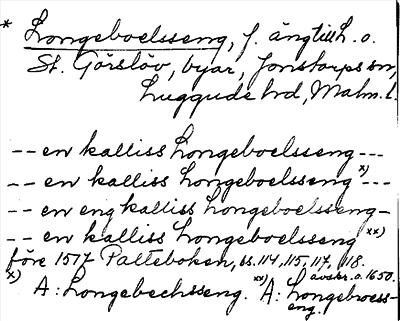 * Longeboelsseng, f. ängtill L. o.
St. Görslöv, byar, Jonstorps sn,
Luggude hd, Malm. l.
-- en kalliss Longeboelsseng ---
-- en kalliss Longeboelsseng x) ---
-- en eng kalliss Longeboelsseng -
-- en kalliss Longeboelsseng xx)
före 1517 Palteboken, ss. 114, 115, 117, 118.
avskr. o. 1650.
x) A: Longebechsseng. xx) A: Longebroess-
eng.